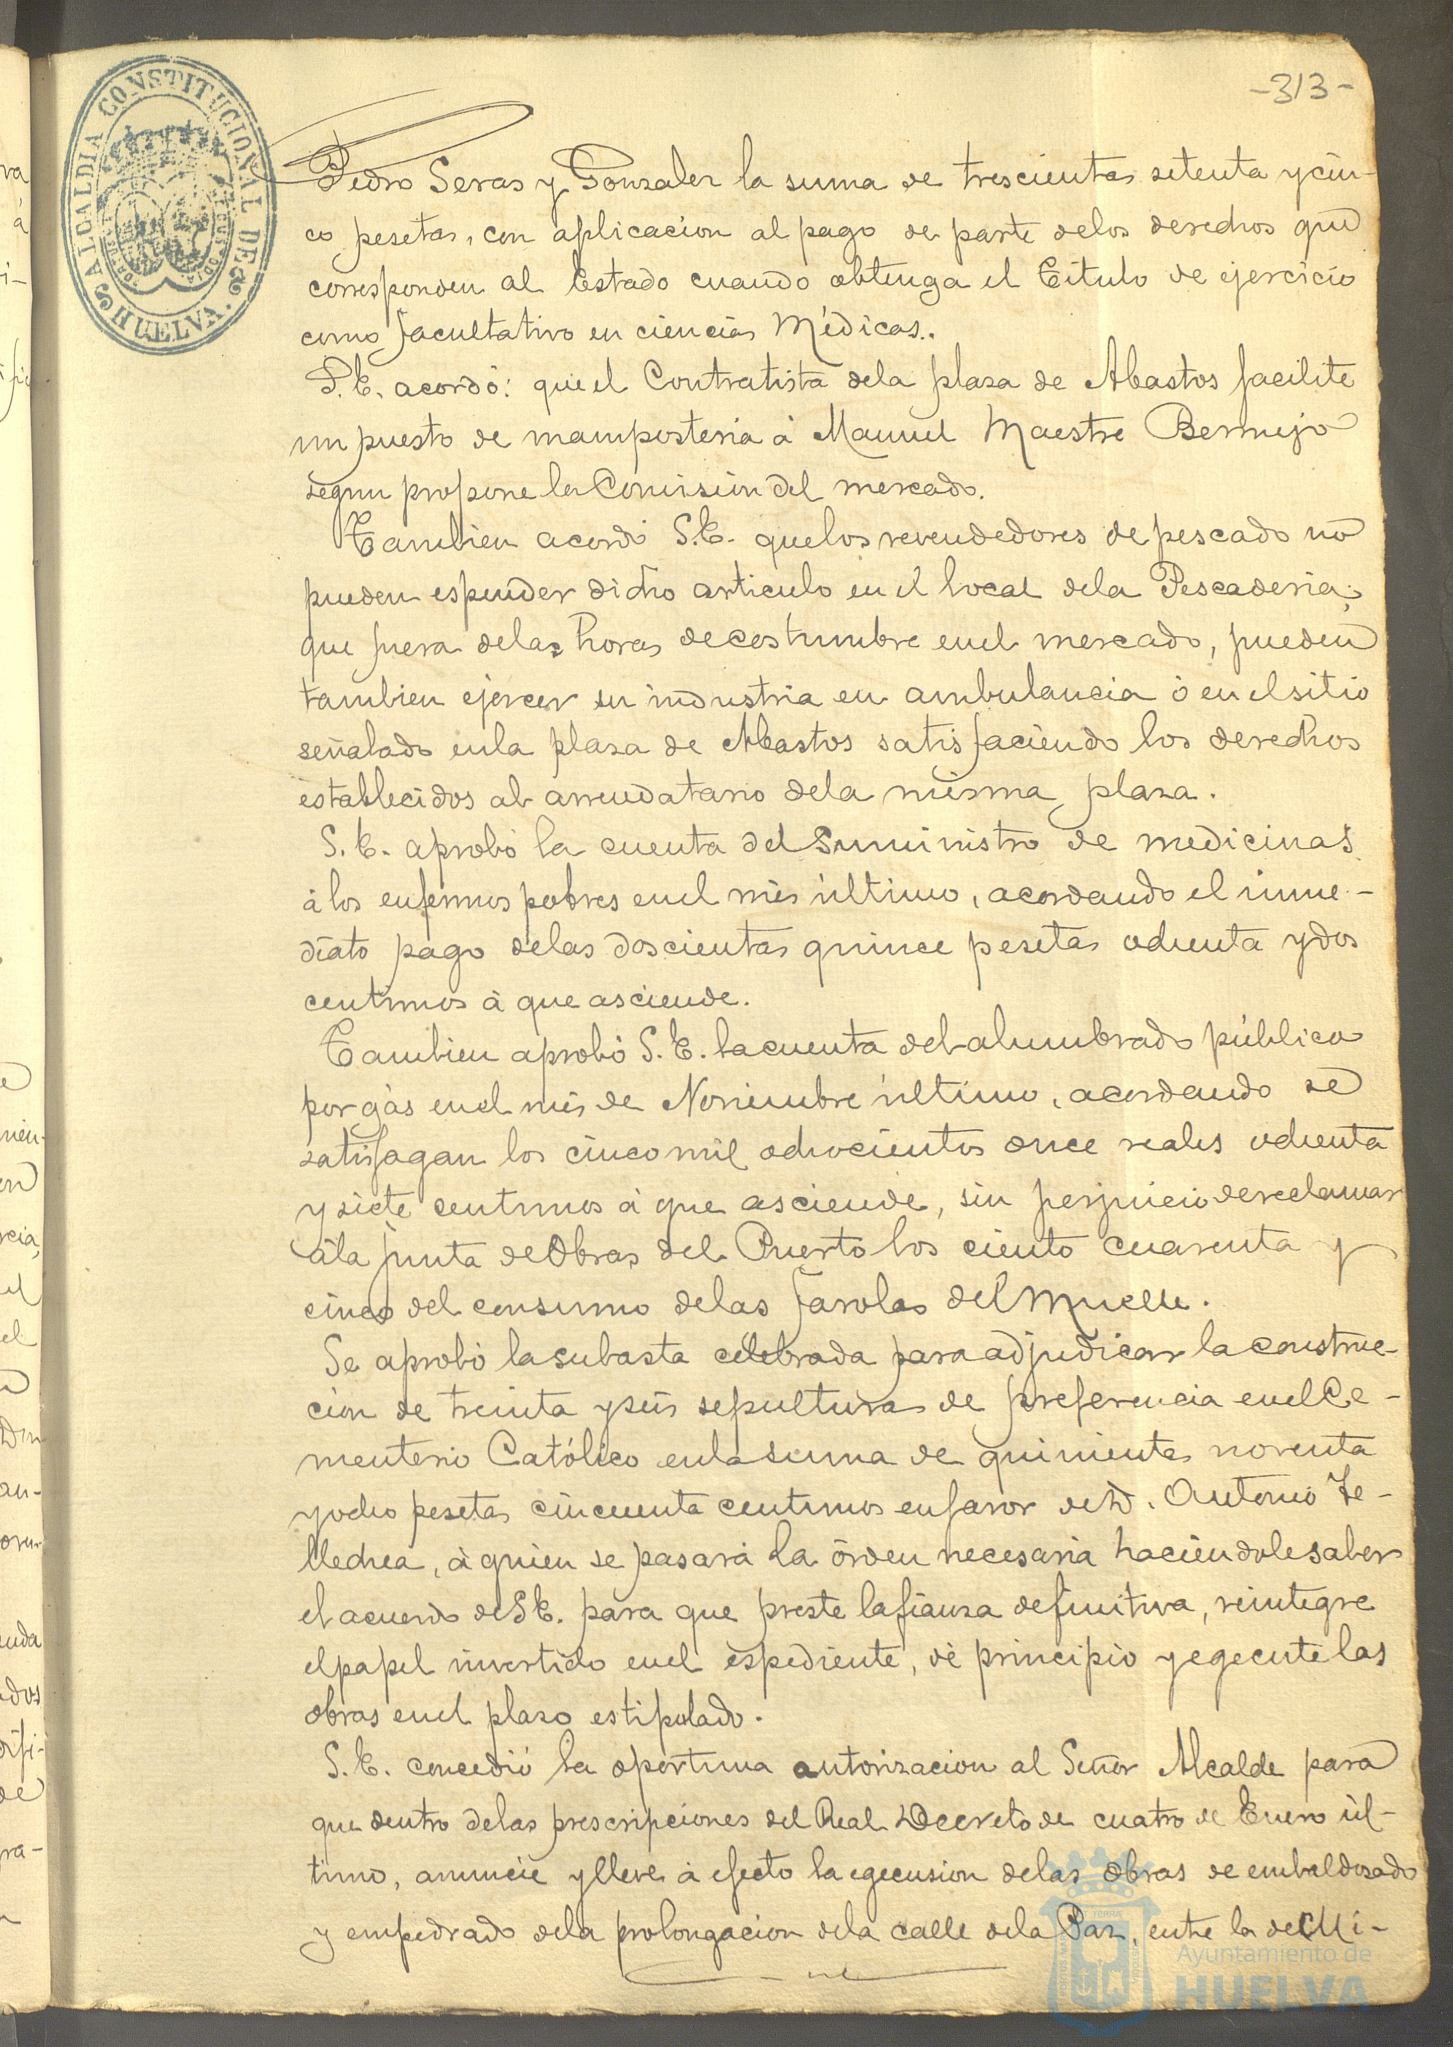 -313-
ALCALDIA CONSTITUCIONAL DE HUELVA.
Pedro Seras y Gonzalez la suma de trescientas setenta y cin-
co pesetas, con aplicacion al pago de parte delos derechos que
corresponden al Estado cuando obtenga el Titulo de ejercicio
como facultativo en ciencias Médicas.
S.E. acordó: que el Contratista dela plaza de Abastos facilite
un puesto de mamposteria á Manuel Maestre Bermejo
segun propone la Comision del mercado.
Tambien acordó S.E. quelos revendedores de pescado no
pueden espender dicho articulo en el local dela Pescaderia,
que fuera delas horas decostumbre enel mercado, pueden
tambien ejercer su industria en ambulancia ó en elsitio
señalado enla plaza de Abastos satisfaciendo los derechos
establecidos al arrendatario dela misma plaza.
S.E. aprobó la cuenta del Suministro de medicinas
á los enfermos pobres enel més último, acordando el inme-
diato pago delas doscientas quince pesetas ochenta y dos
centimos á que asciende.
Tambien aprobó S.E. la cuenta del alumbrado público
por gás enel més de Noviembre último, acordando se
satisfagan los cinco mil ochocientos once reales ochenta
y siete centimos á que asciende, sin perjuicio dereclamar
ála junta deObras del Puerto los ciento cuarenta y
cinco del consumo delas farolas del Muelle.
Se aprobó la subasta celebrada para adjudicar la construc-
cion de treinta y seis sepulturas de preferencia enel Ce-
menterio Católico enla suma de quinientas noventa
y ocho pesetas cincuenta centimos en favor de D. Antonio Te-
llechea, á quien se pasará la órden necesaria haciendole saber
el acuerdo de S.E. para que preste la fianza definitiva, reintegre
el papel invertido enel espediente, dé principio y egecute las
obras enel plazo estipulado.
S.E. concedió la oportuna autorizacion al Señor Alcalde para
que dentro delas prescripciones del Real Decreto de cuatro de Enero úl-
timo, anuncie y lleve á efecto la egecusion delas obras de embaldosado
y empedrado dela prolongacion dela calle dela Paz, entre la de Mi-
Ayuntamiento de
HUELVA